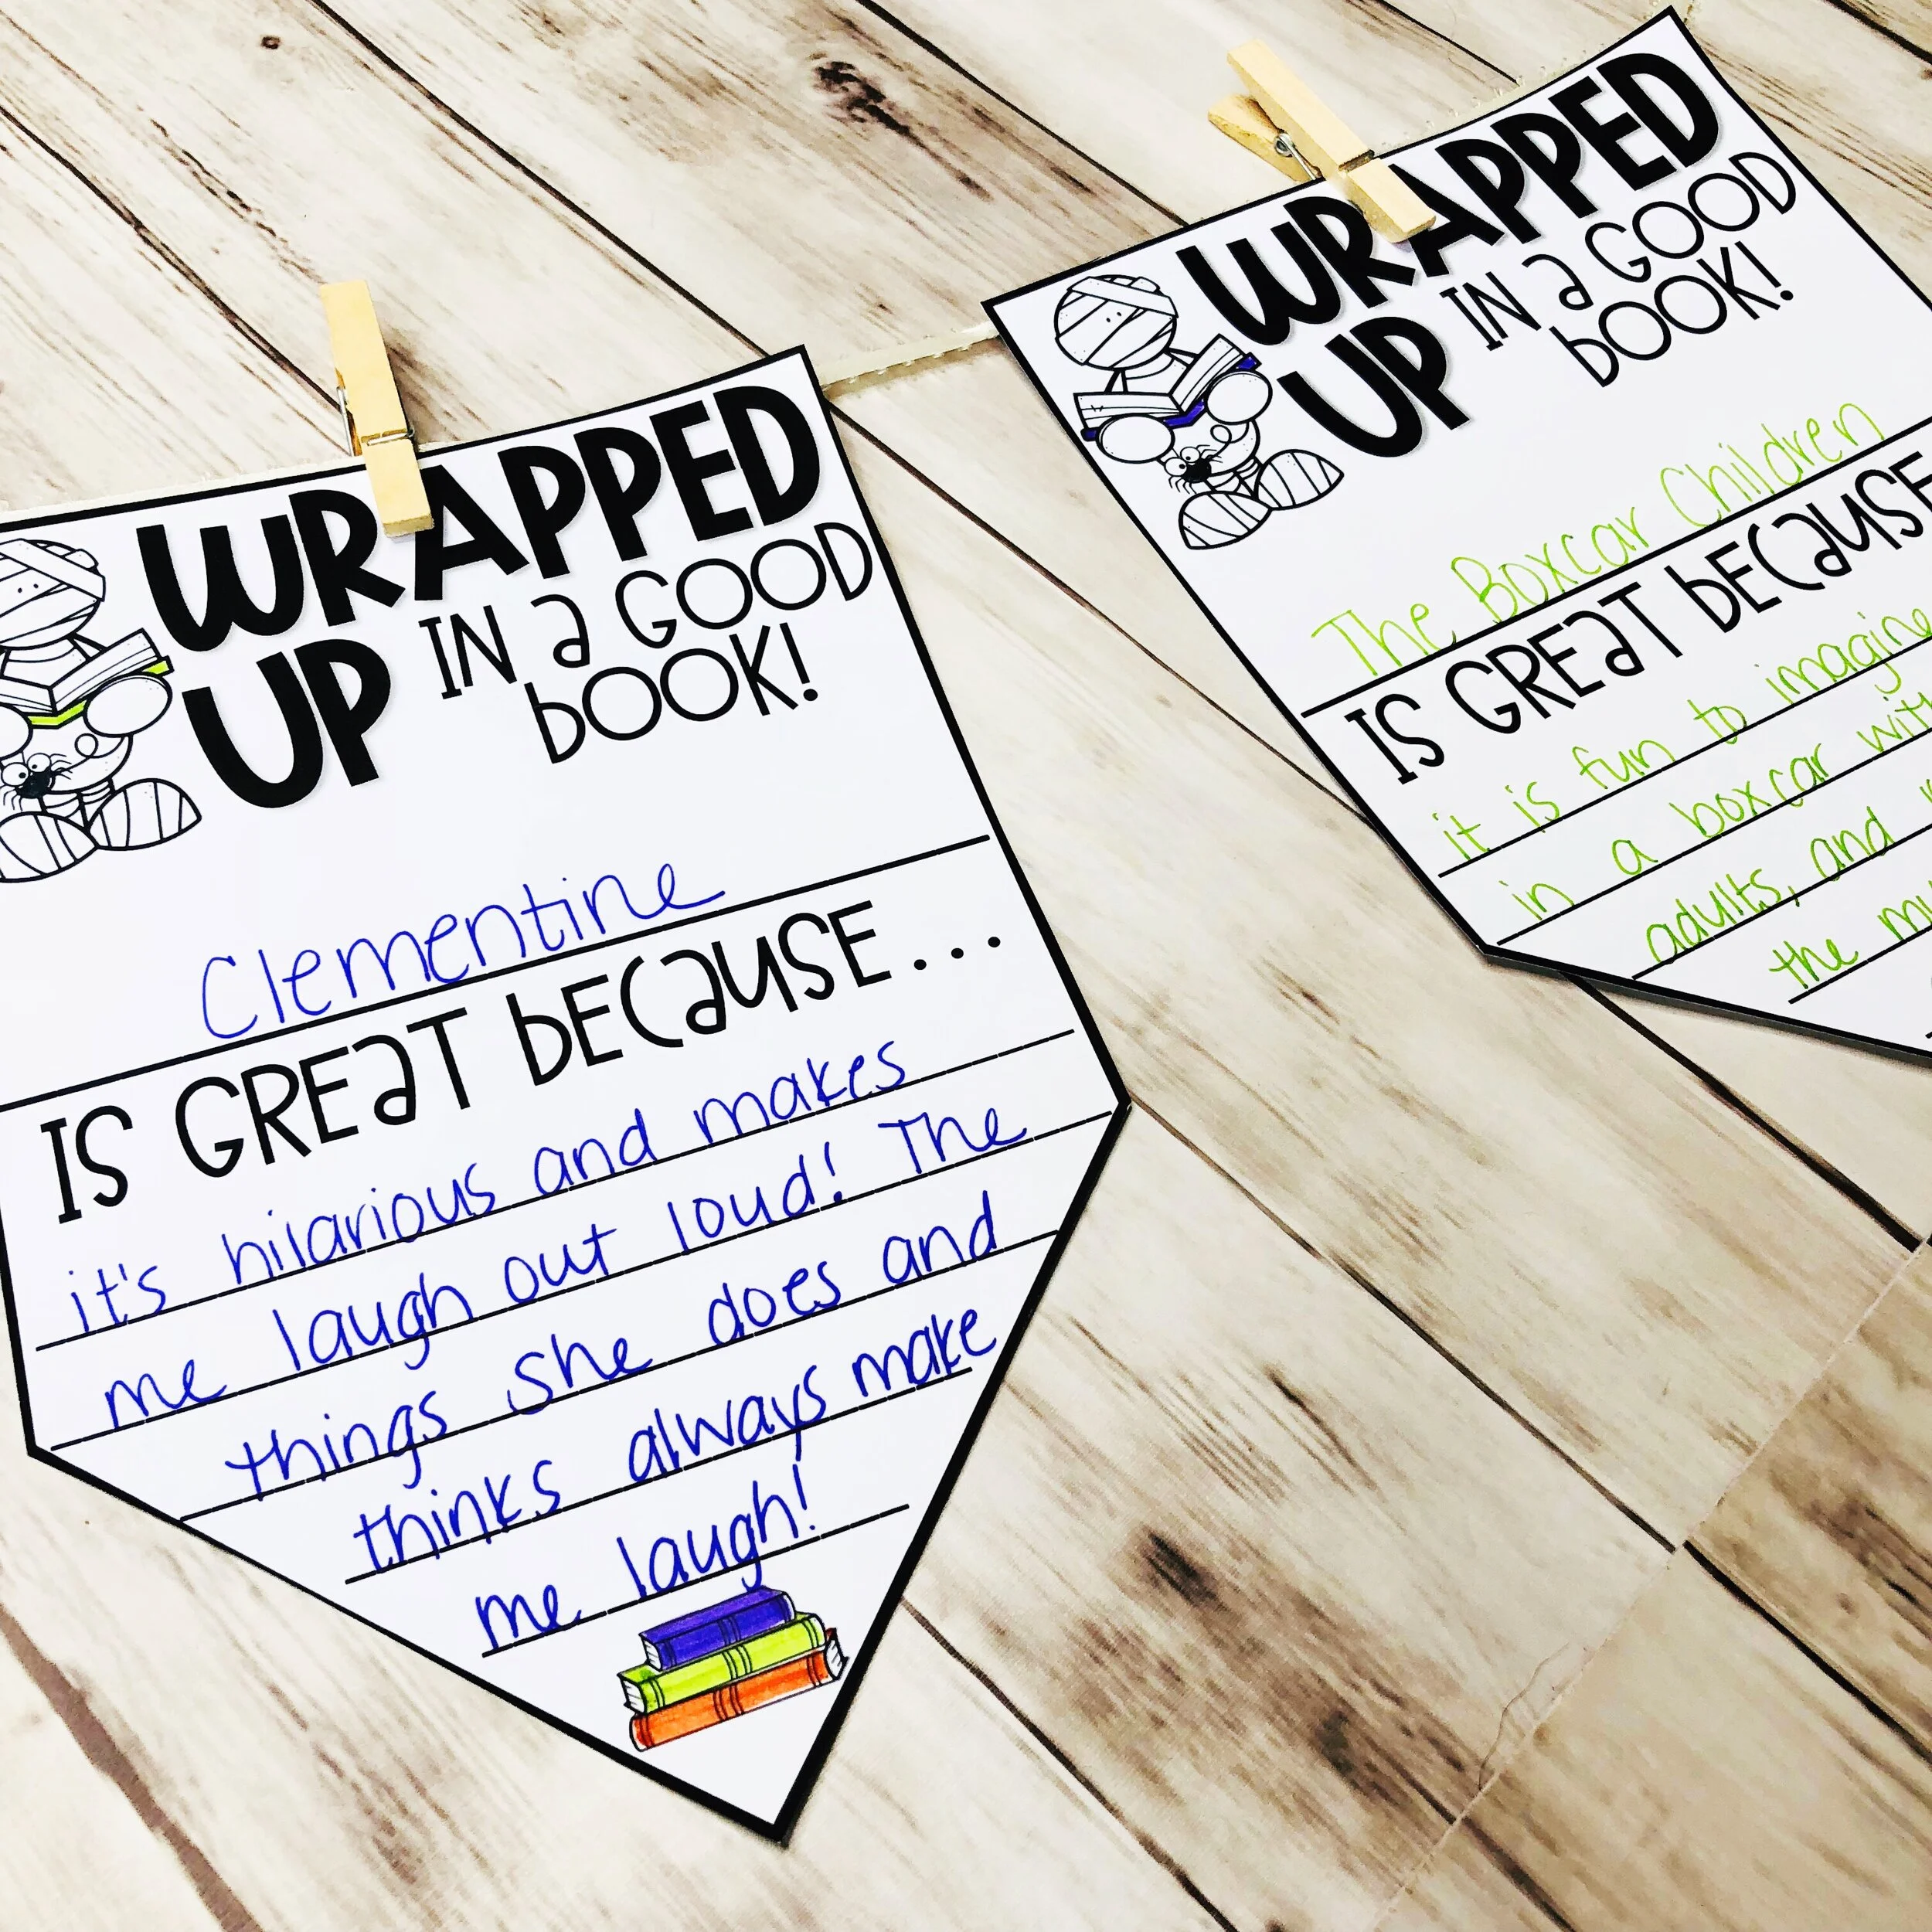 WRAPPED
UP IN a GOOD
bOOK!
Clementine
IS GREaT bECaUSE...
it's hilarious and makes
me laugh out loud! The
things she does and
thinks always make
me laugh!
WRAPPED
UP IN a GOOD
bOOK!
The Boxcar Children
IS GREaT bECaUSE
it is fun to imagine
in a boxcar with
adults, and
the